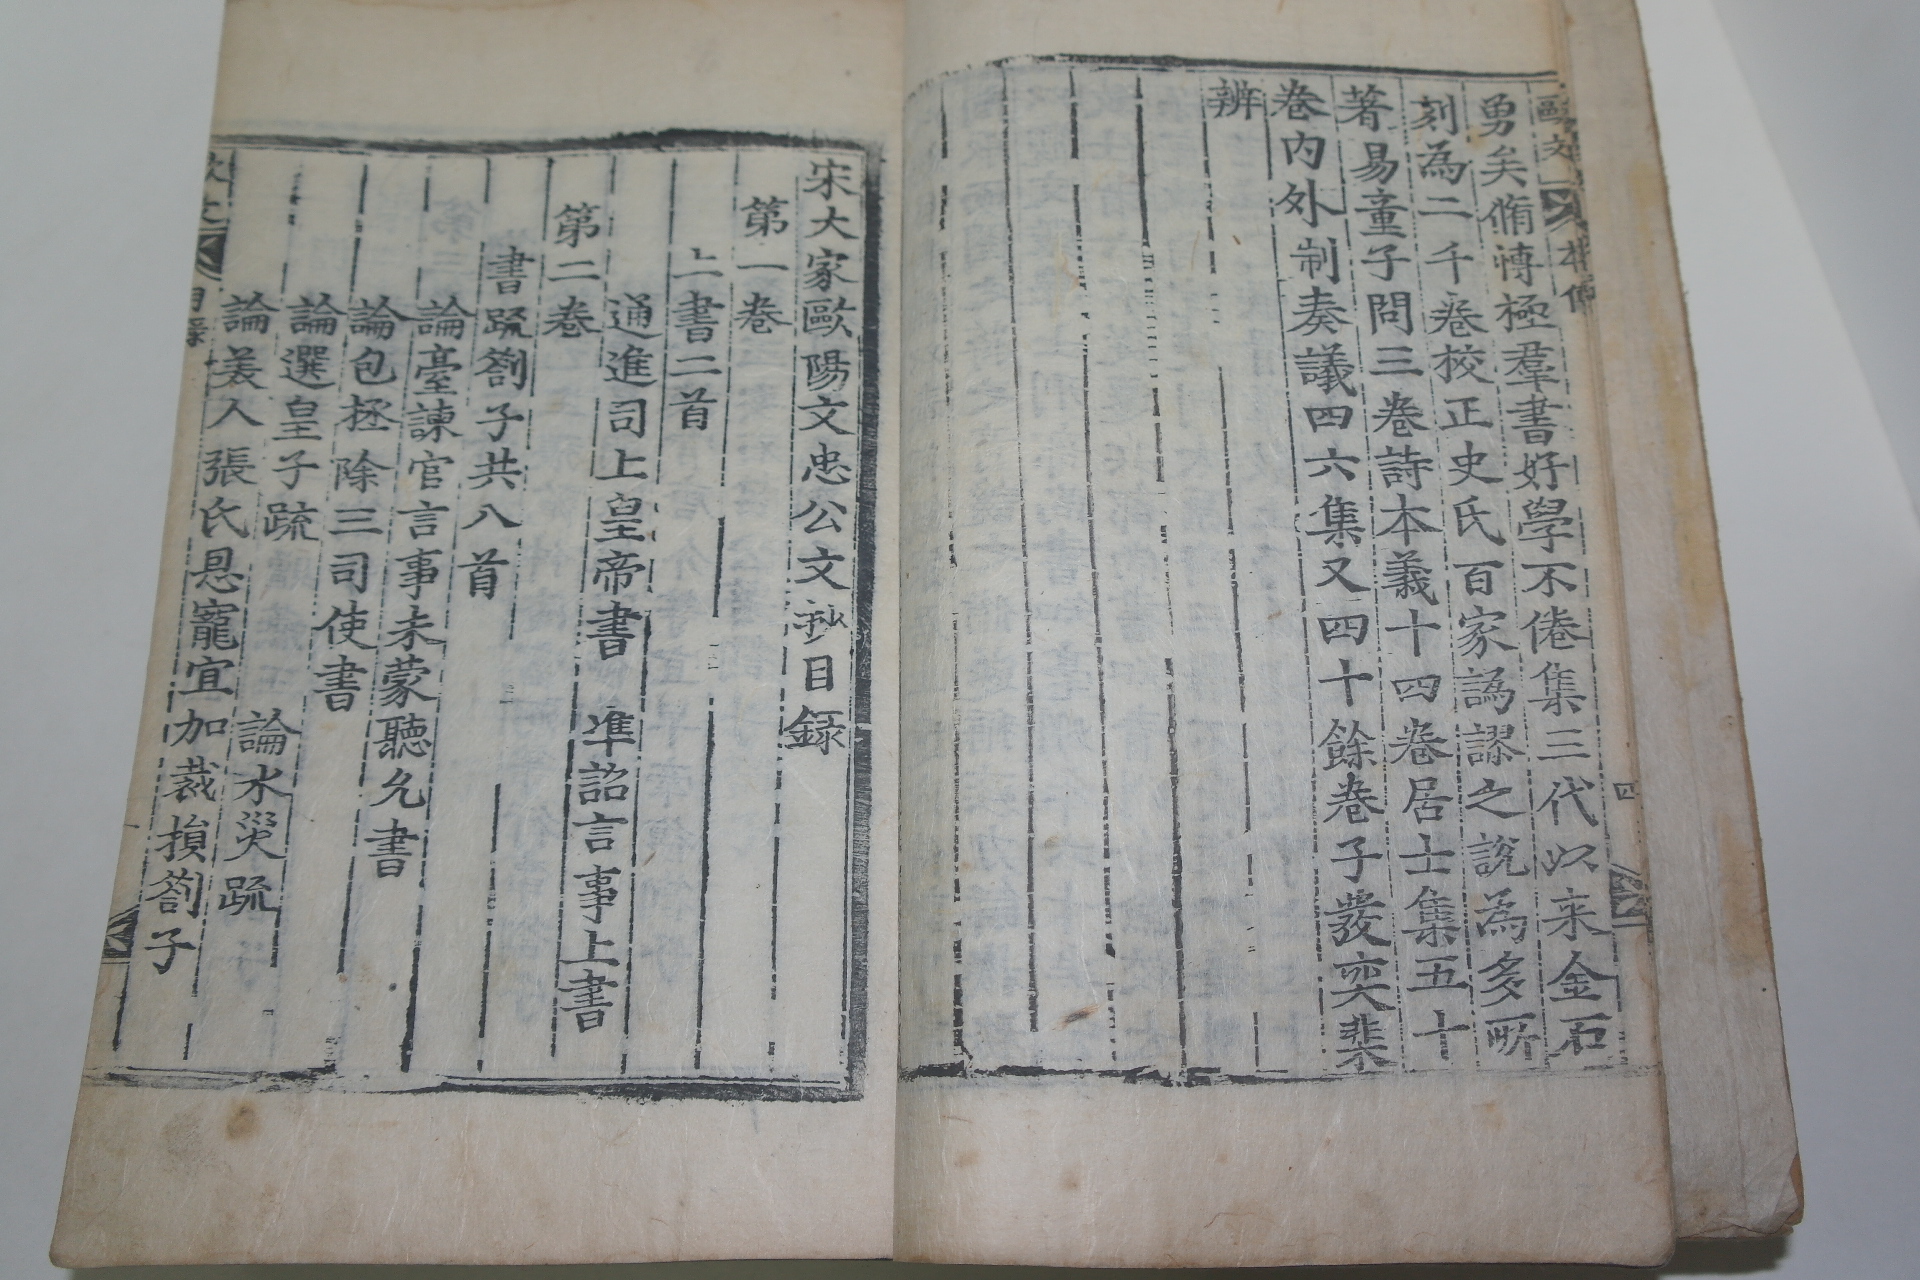 歐文
本傳
四
勇矣脩博極羣書好學不倦集三代以来金石
刻為二千卷校正史氏百家譌謬之說為多所
著易童子問三卷詩本義十四卷居士集五十
卷內外制奏議四六集又四十餘卷子發奕棐
辨
宋大家歐陽文忠公文抄目録
第一卷
上書二首
通進司上皇帝書 準詔言事上書
第二卷
書䟽劄子共八首
論臺諫官言事未蒙聽允書
論包拯除三司使書
論選皇子疏 論水災疏
論美人張氏恩寵宜加裁損劄子
歐文
目錄